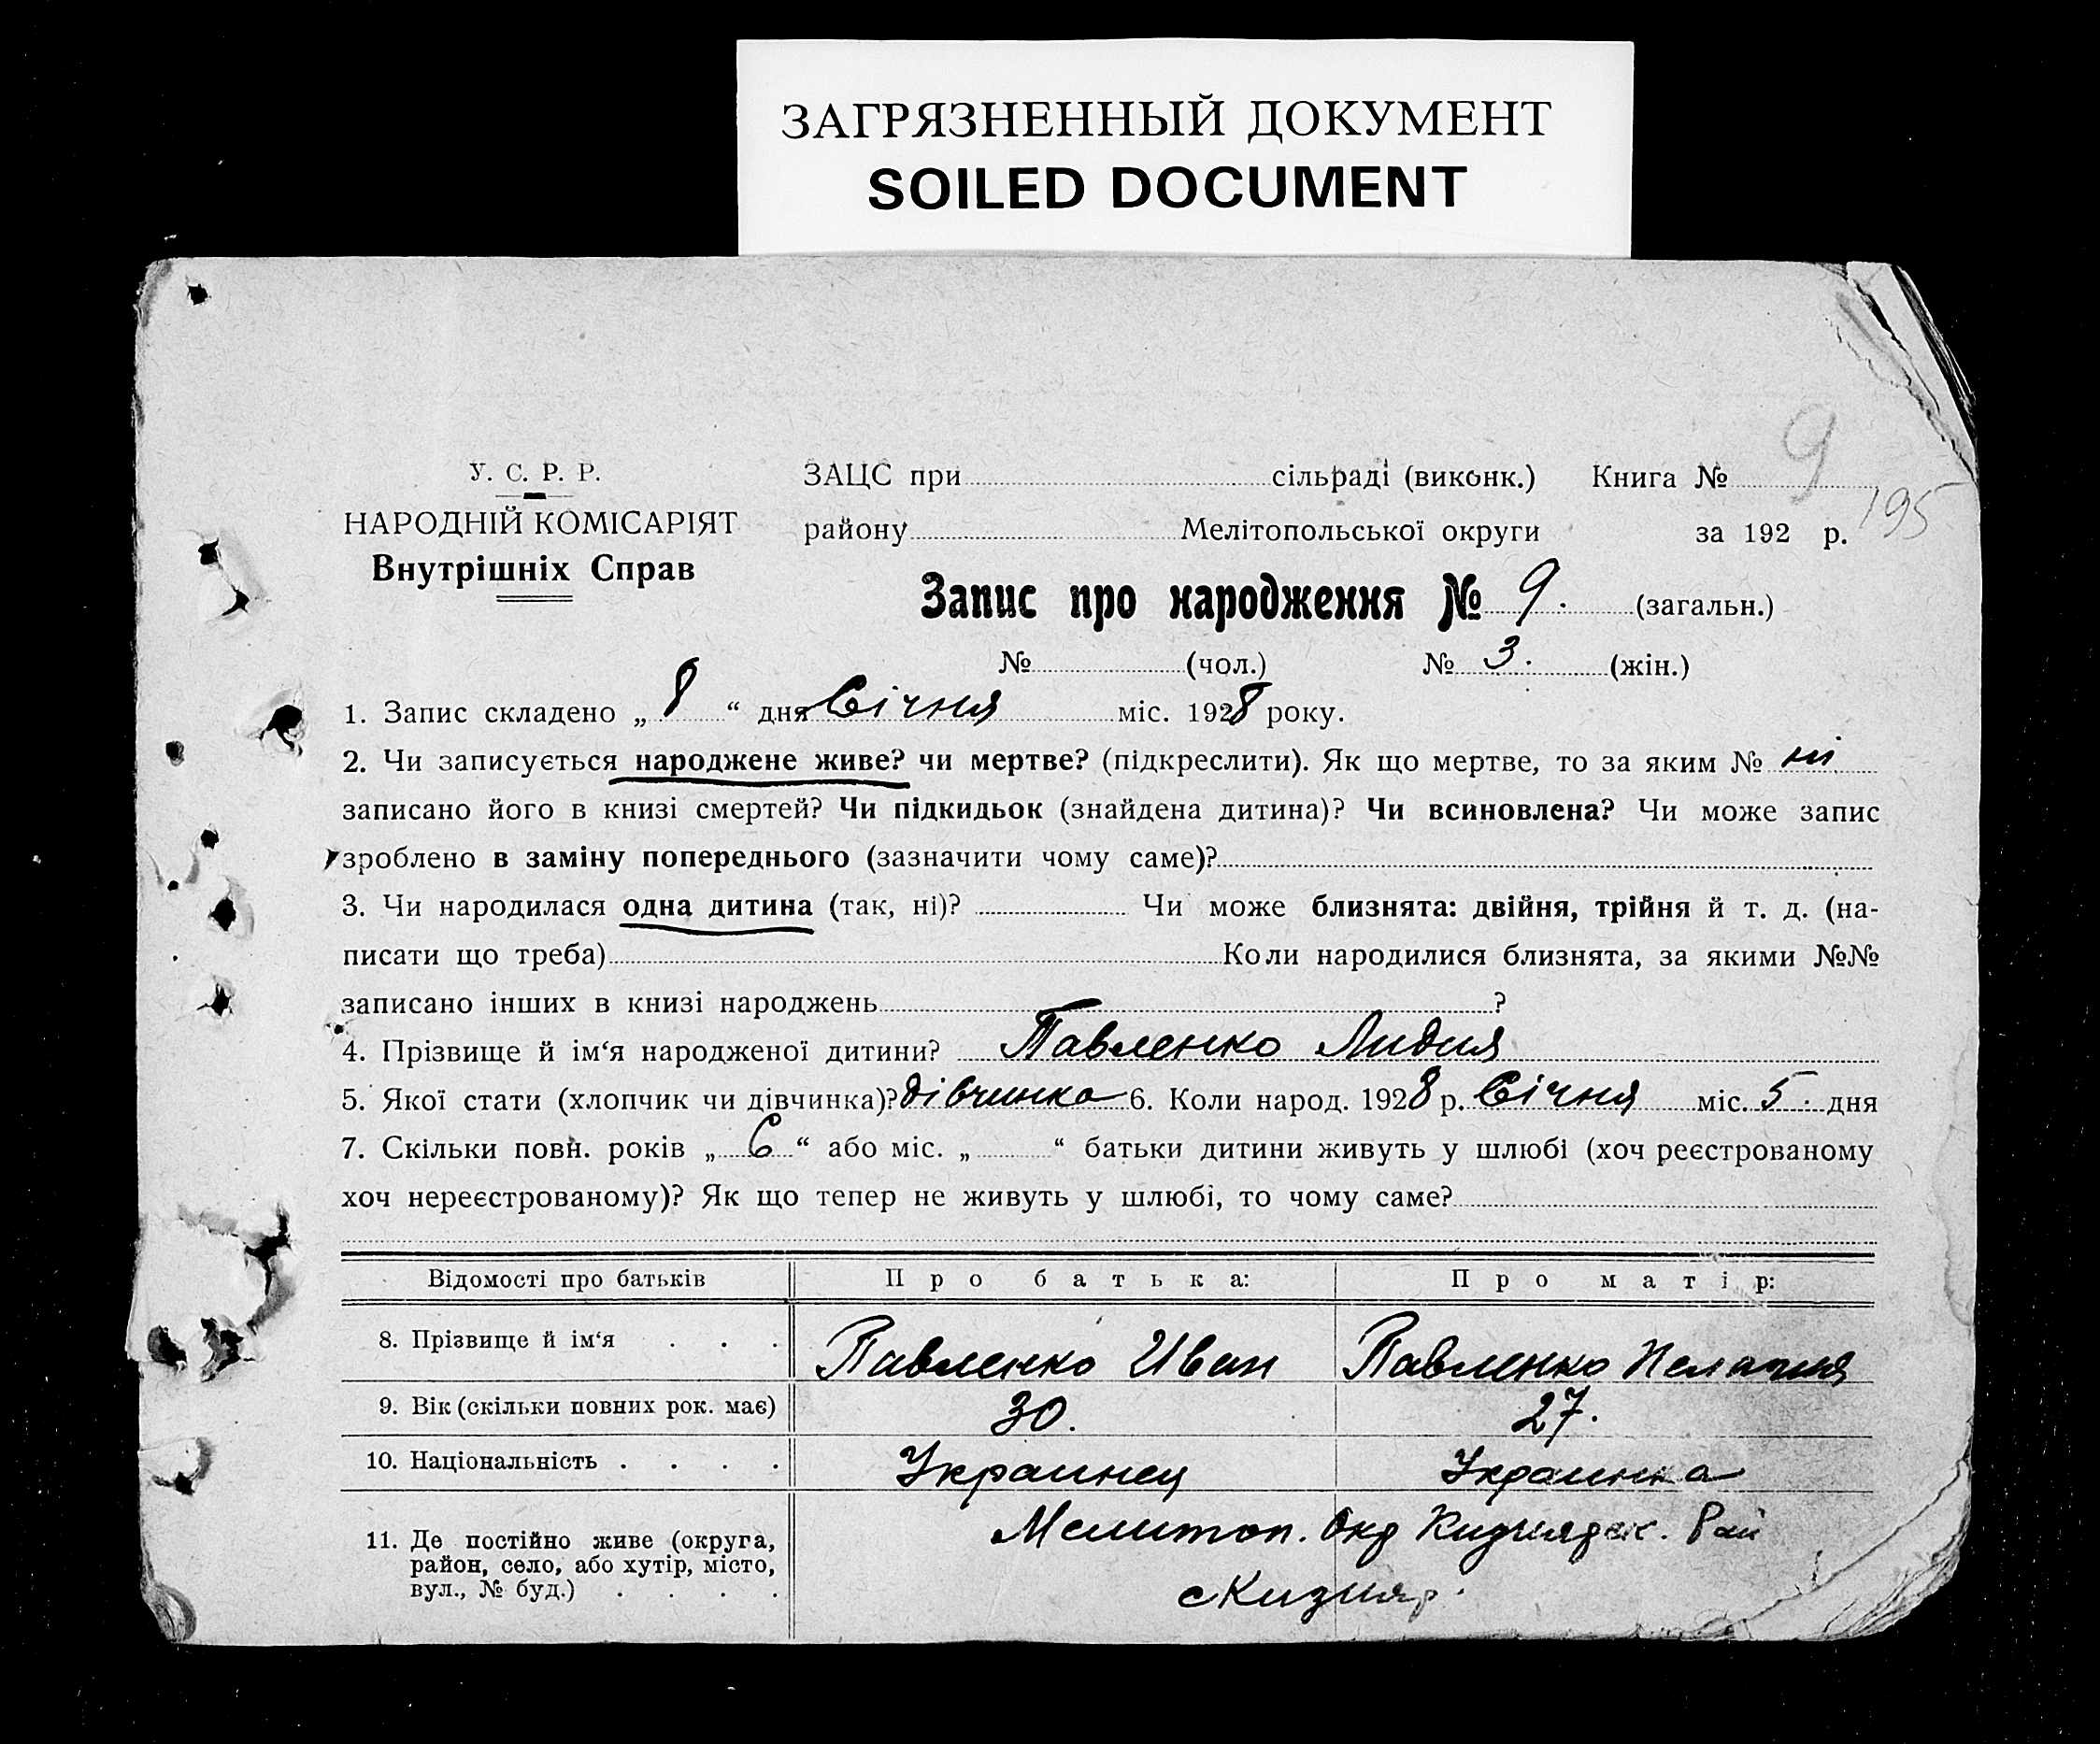 ЗАГРЯЗНЕННЫЙ ДОКУМЕНТ
SOILED DOCUMENT
9
195
У. С. Р. Р.
НАРОДНІЙ КОМІСАРІЯТ
Внутрішніх Справ
ЗАЦС при сільраді (виконк.) Книга №
району Мелітопольської округи за 192 р.
Запис про народження № 9. (загальн.)
№ (чол.) № 3. (жін.)
1. Запис складено „ 8 “ дня Січня міс. 1928 року.
2. Чи записується народжене живе? чи мертве? (підкреслити). Як що мертве, то за яким № ні
записано його в книзі смертей? Чи підкидьок (знайдена дитина)? Чи всиновлена? Чи може запис
зроблено в заміну попереднього (зазначити чому саме)?
3. Чи народилася одна дитина (так, ні)? Чи може близнята: двійня, трійня й т. д. (на-
писати що треба) Коли народилися близнята, за якими №№
записано інших в книзі народжень ?
4. Прізвище й ім‘я народженої дитини? Павленко Лидия
5. Якої стати (хлопчик чи дівчинка)? дівчинка 6. Коли народ. 1928 р. Січня міс. 5. дня
7. Скільки повн. років „ 6 “ або міс. „ “ батьки дитини живуть у шлюбі (хоч реєстрованому
хоч нереєстрованому)? Як що тепер не живуть у шлюбі, то чому саме?
Відомості про батьків Про батька: Про матір:
8. Прізвище й ім‘я . . . Павленко Иван Павленко Пелагия
9. Вік (скільки повних рок. має) 30. 27.
10. Національність . . . . Украинец Украинка
11. Де постійно живе (округа,
район, село, або хутір, місто,
вул., № буд.) . . . .
Мелитоп. Окр Кизиярск. Рай
с Кизияр.